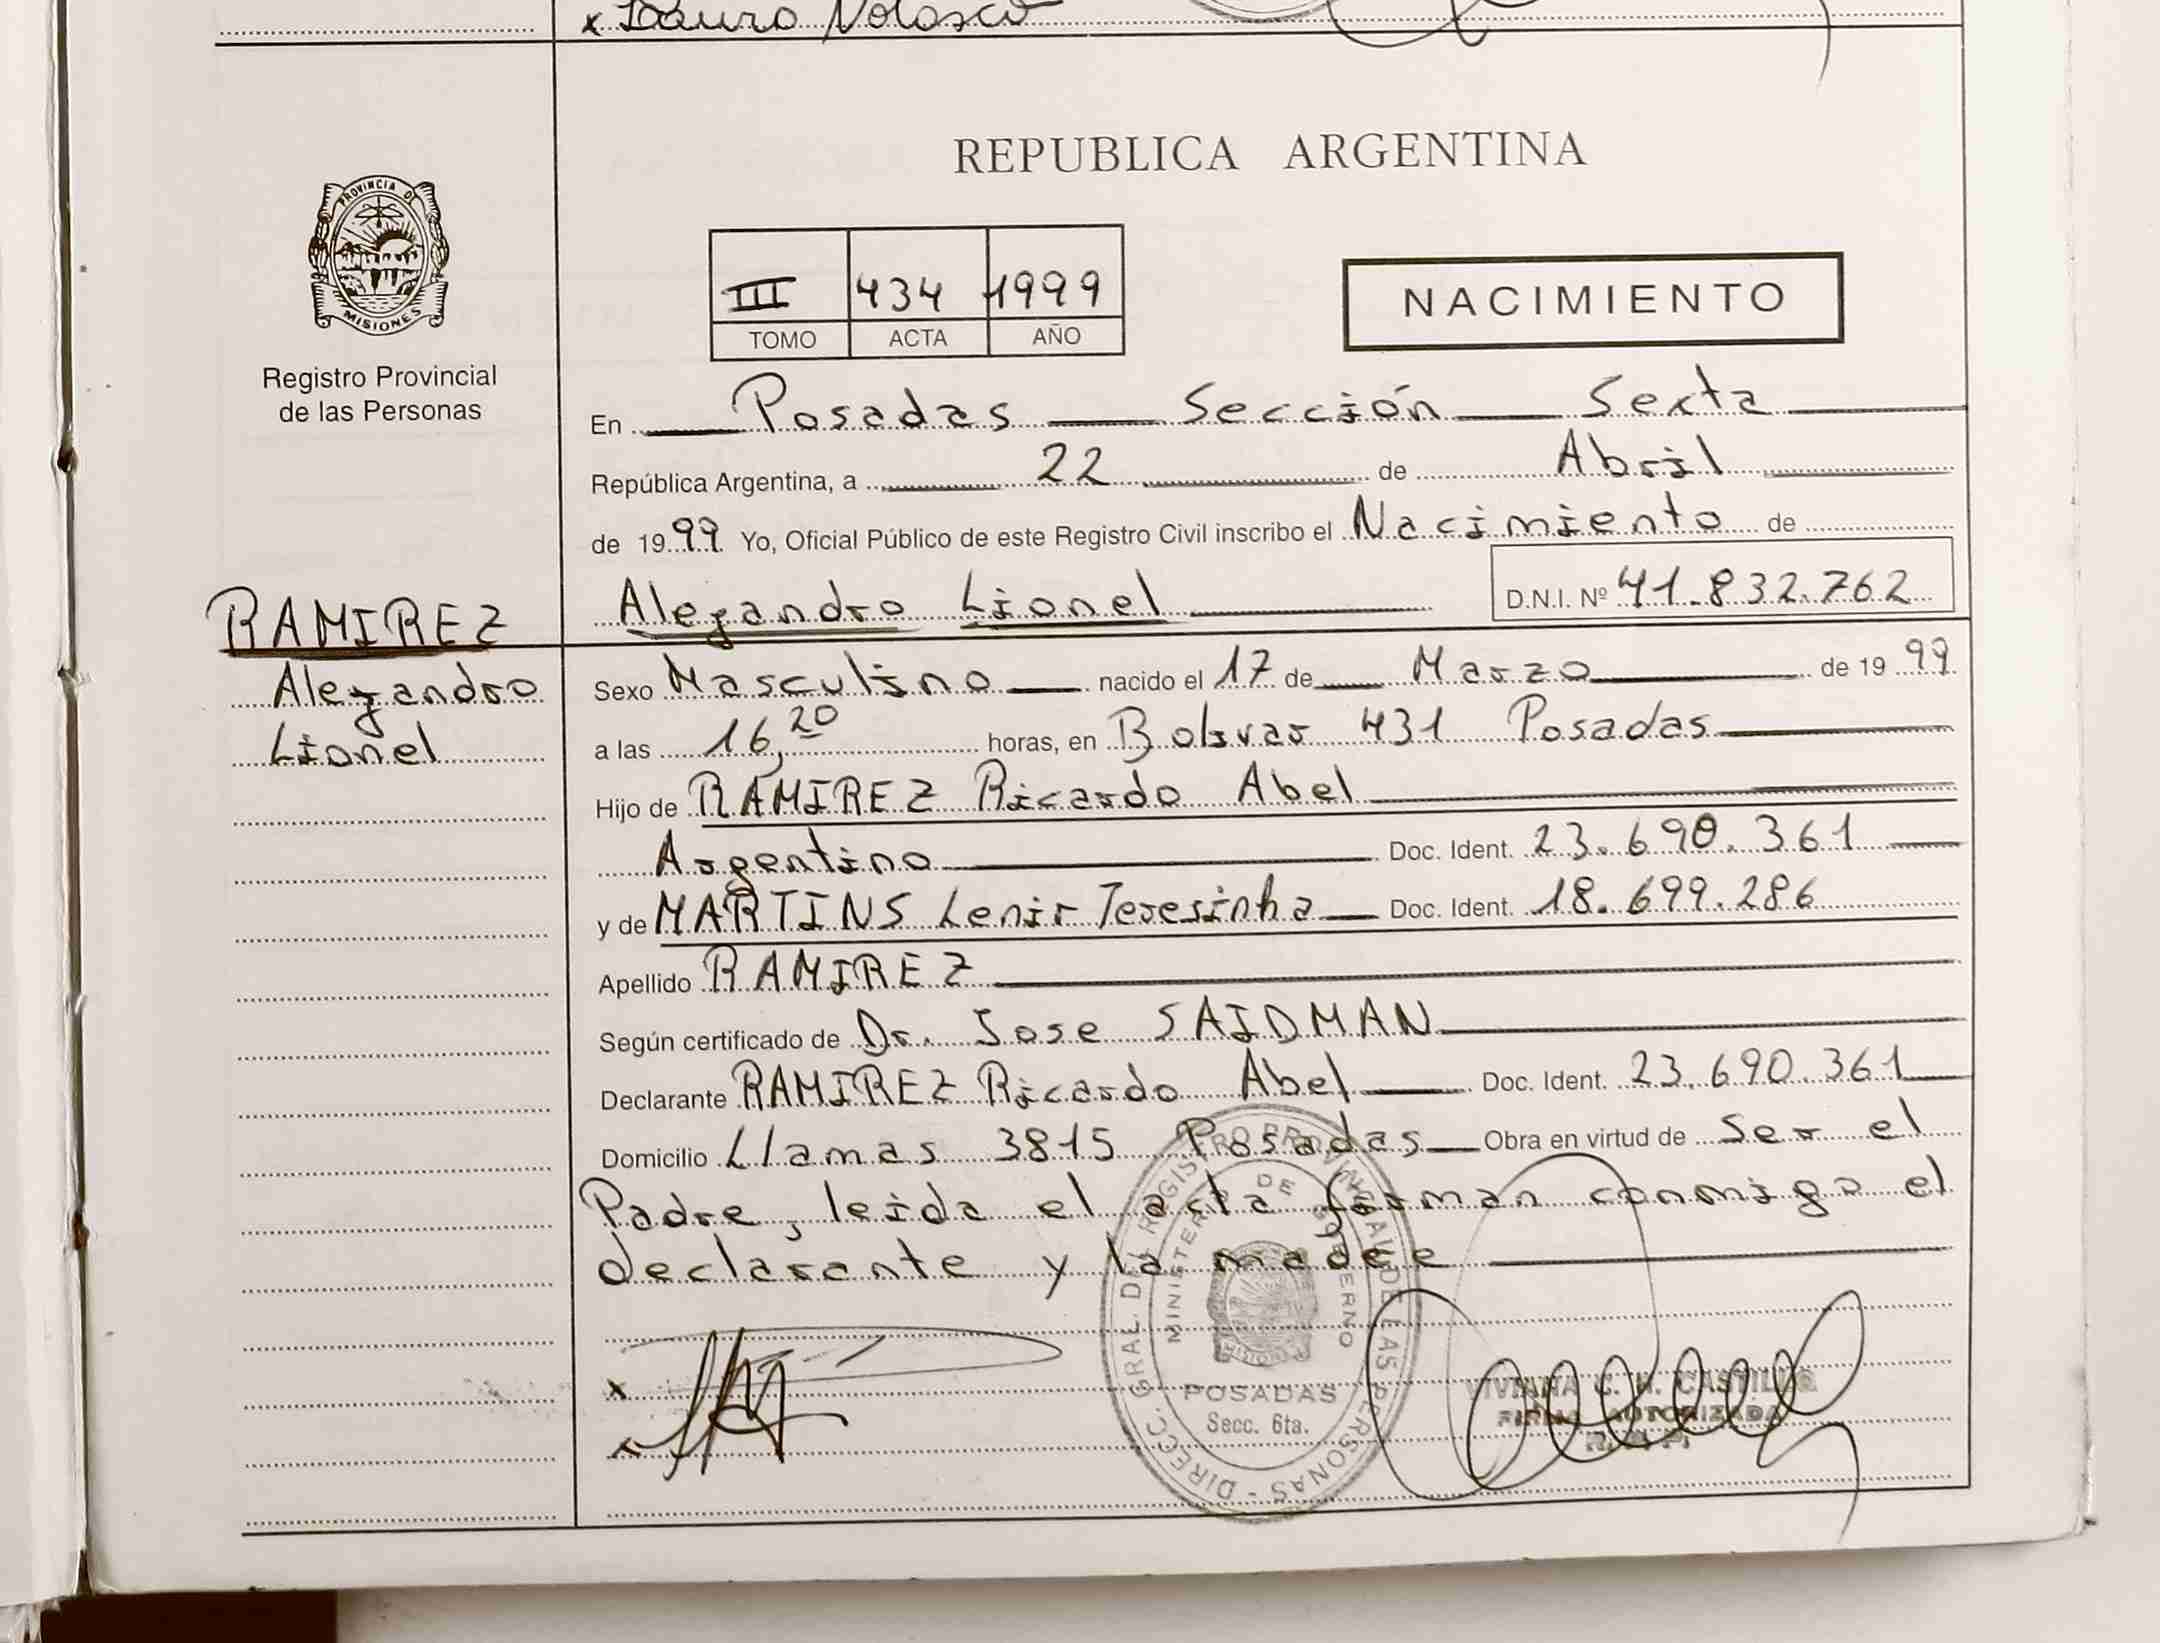 x Lauro Velasco
PROVINCIA DE
MISIONES
Registro Provincial
de las Personas
REPUBLICA ARGENTINA
III 434 1999
TOMO ACTA AÑO
NACIMIENTO
En Posadas Sección Sexta
República Argentina, a 22 de Abril
de 1999 Yo, Oficial Público de este Registro Civil inscribo el Nacimiento de
Alejandro Lionel D.N.I. Nº 41.832.762
RAMIREZ
Alejandro
Lionel
Sexo Masculino nacido el 17 de Marzo de 1999
a las 16,20 horas, en Bolivar 431 Posadas
Hijo de RAMIREZ Ricardo Abel
Argentino Doc. Ident. 23.690.361
y de MARTINS Lenir Teresinha Doc. Ident. 18.699.286
Apellido RAMIREZ
Según certificado de Dr. Jose SAIDMAN
Declarante RAMIREZ Ricardo Abel Doc. Ident. 23.690.361
Domicilio Llamas 3815 Posadas Obra en virtud de Ser el
Padre, leida el acta firman conmigo el
declarante y la madre
DIRECC. GRAL. DEL REGISTRO PROVINCIAL DE LAS PERSONAS
MINISTERIO DE GOBIERNO
MISIONES
POSADAS
Secc. 6ta.
x
x
VIVIANA C. N. CASTILLO
FIRMA AUTORIZADA